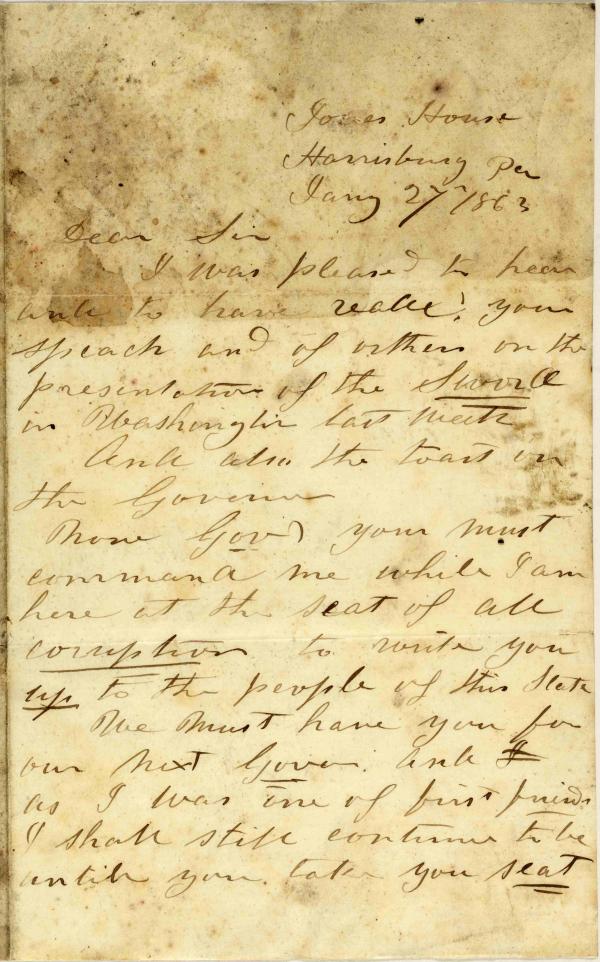 Jones House
Harrisburg Pa
Jany 27th 1863
Dear Sir
I was pleased to hear
and to have readed your
speach and of orthers on the
presentation of the Sword
in Washington last Week
And also the toast on
the Governor
Gov) your must
command me while I am
here at the seat of all
corruption to write you
up to the people of this State
We Must have you for
our Next Govor. And I
as I was one of first friends
I shall still continue to be
untill you take you seat